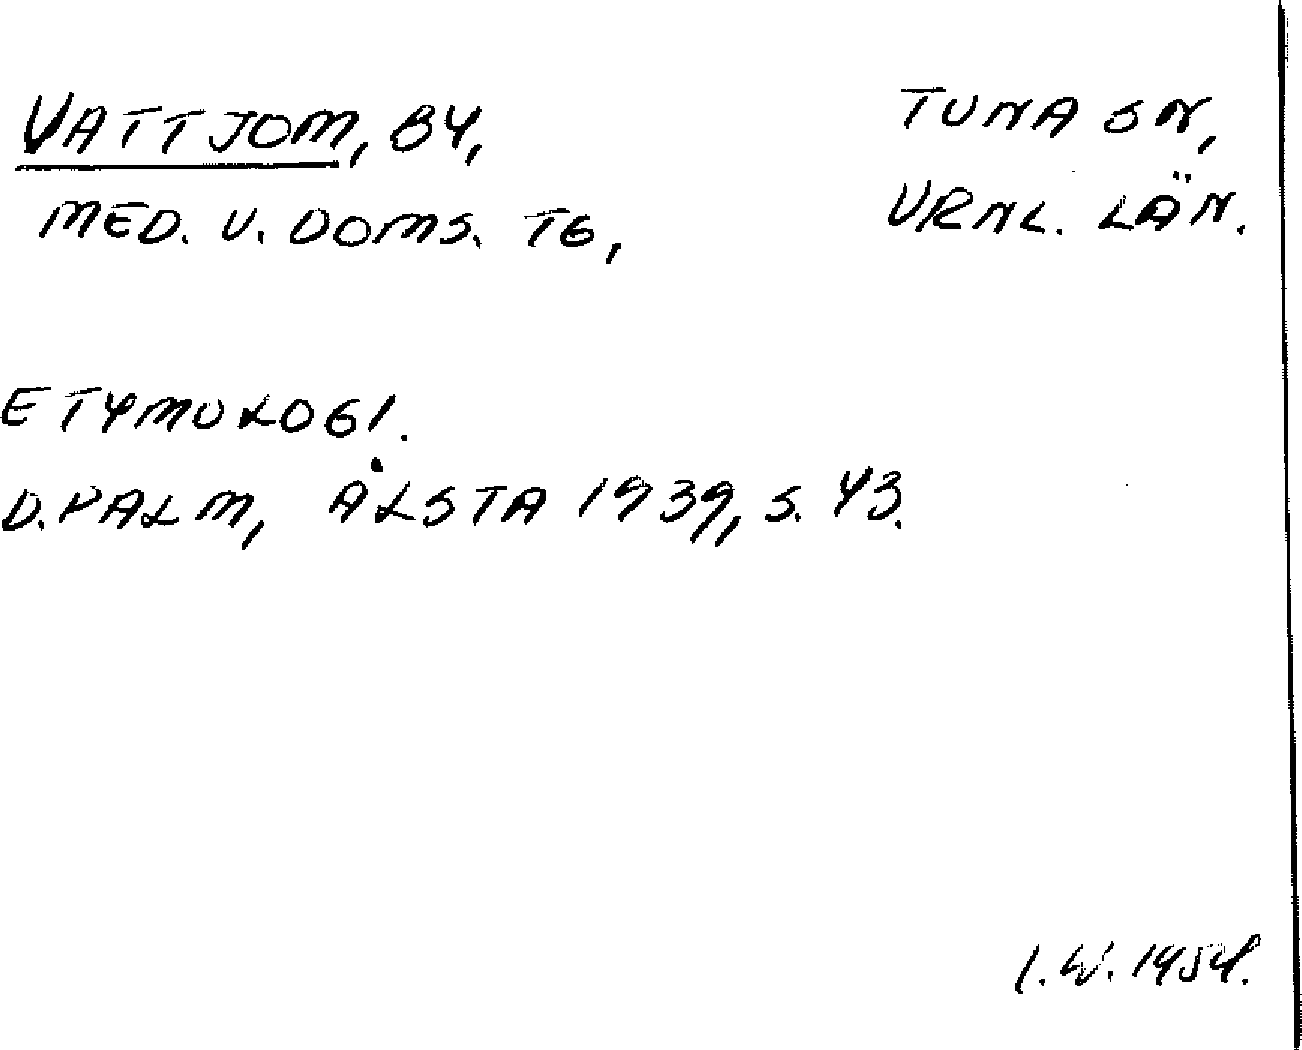 VATTJOM, BY, TUNA SN,
MED. V. DOMS. TG, VRNL. LÄN.
ETYMOLOGI.
D. PALM, ÅLSTA 1939, S. 43.
I. W. 1954.